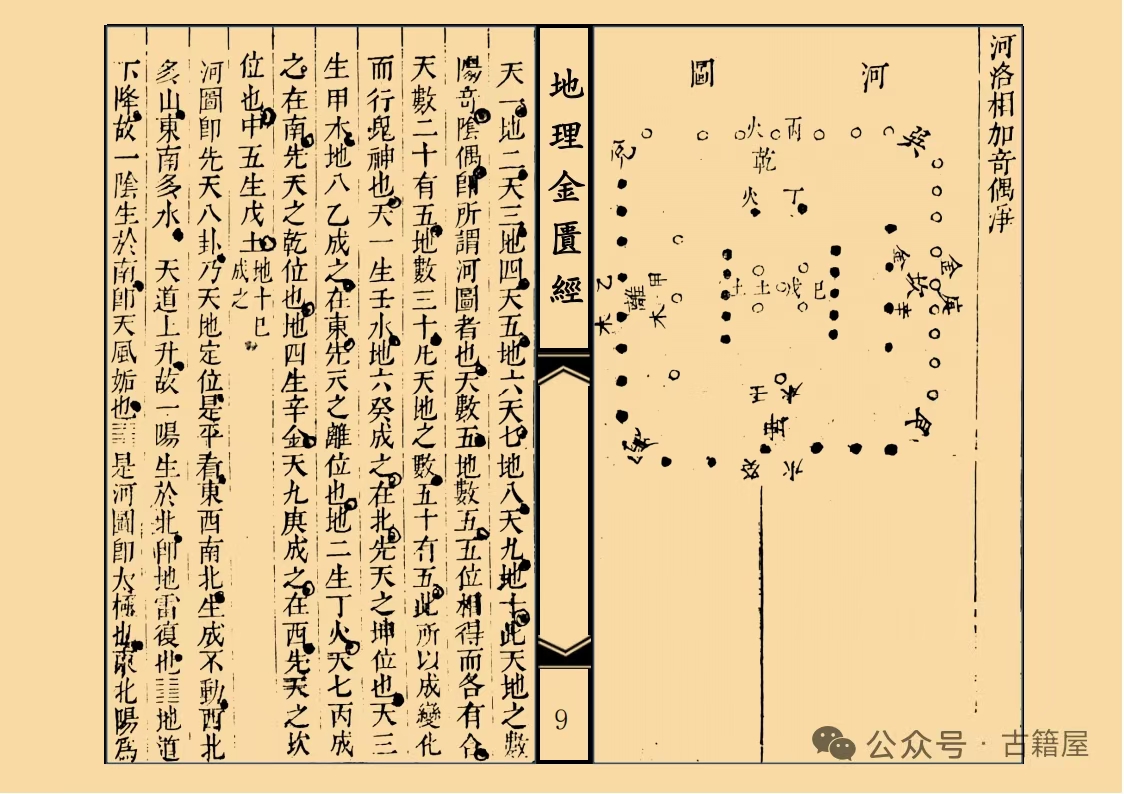 河洛相加奇偶渾
河圖
丙火
乾
丁火
癸
兌
乙木
甲木
離
土土戊己
金庚
金辛
坎
壬水
坤
癸水
地理金匱經
9
天一地二天三地四天五地六天七地八天九地十此天地之數
陽奇陰偶即所謂河圖者也天數五地數五五位相得而各有合
天數二十有五地數三十凡天地之數五十有五此所以成變化
而行鬼神也天一生壬水地六癸成之在北先天之坤位也天三
生甲木地八乙成之在東先天之離位也地二生丁火天七丙成
之在南先天之乾位也地四生辛金天九庚成之在西先天之坎
位也中五生戊土地十己成之
河圖即先天八卦乃天地定位是平看東西南北生成不動西北
多山東南多水 天道上升故一陽生於北即地雷復也䷗地道
下降故一陰生於南即天風姤也䷫是河圖即太極也東北陽為
公众号·古籍屋